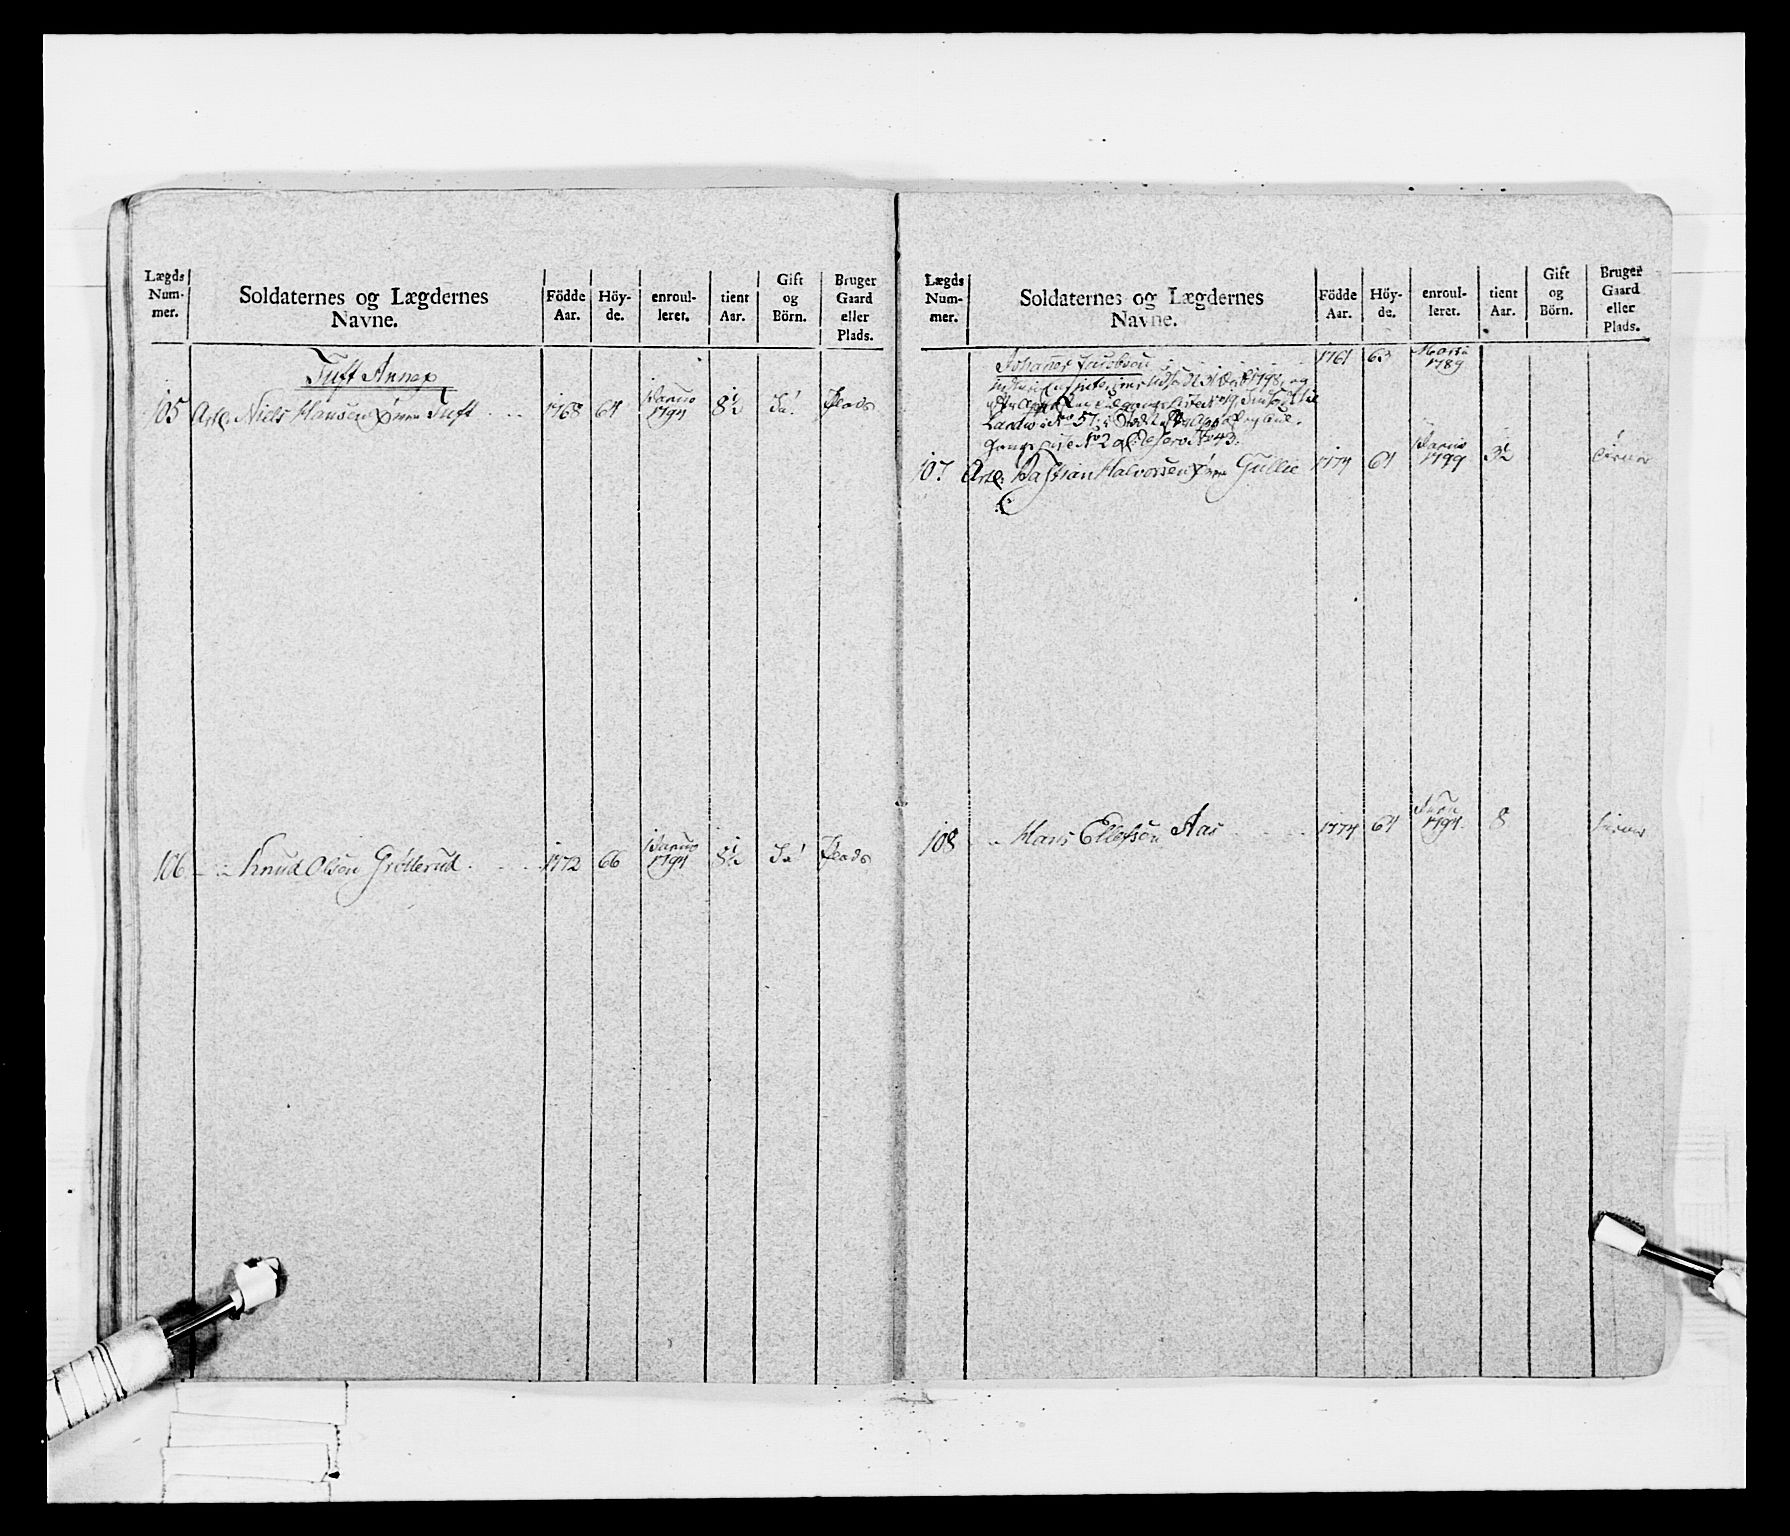 Lægds Num- mer.
Soldaternes og Lægdernes Navne.
Födde Aar.
Höy- de.
enroul- leret.
tient Aar.
Gift og Börn.
Bruger Gaard eller Plads.
Tuft Annex
105 Artl. Niels Hansen øvre Tuft 1768 64 Januv 1794 8½ Ja! Plads
106 Knud Olsen Grötterud 1772 66 Januv 1794 8½ Ja! Plads
Lægds Num- mer.
Soldaternes og Lægdernes Navne.
Födde Aar.
Höy- de.
enroul- leret.
tient Aar.
Gift og Börn.
Bruger Gaard eller Plads.
Johannes Jacobsen 1761 63 1789
1798, og
No 57
No 2 No 43.
107. Artl. Bastian Halvorsen øvre Gullie 1774 64 Januv 1799 3½ tiener
108 Hans Ellefsen Aas 1774 64 1794. 8 tiener